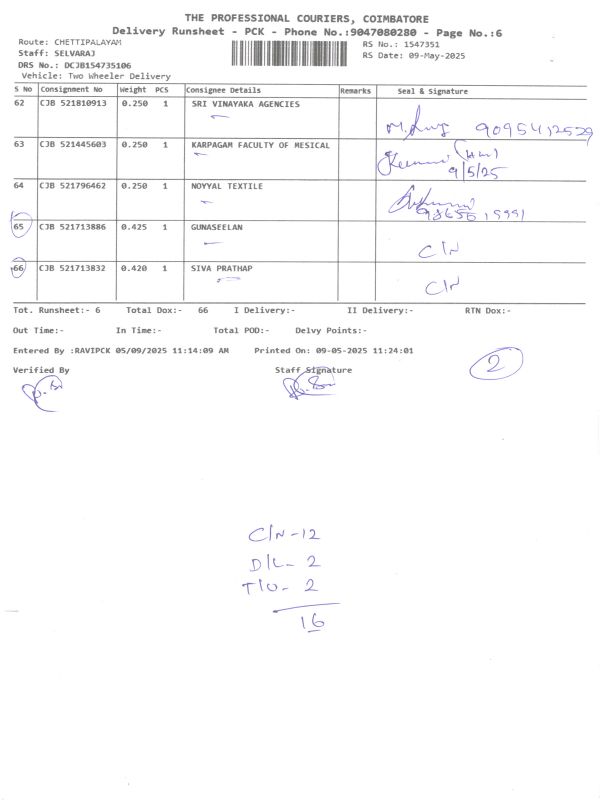 THE PROFESSIONAL COURIERS, COIMBATORE
Delivery Runsheet - PCK - Phone No.:9047080280 - Page No.:6
Route: CHETTIPALAYAM RS No.: 1547351
Staff: SELVARAJ RS Date: 09-May-2025
DRS No.: DCJB154735106
Vehicle: Two Wheeler Delivery
S No Consignment No Weight PCS Consignee Details Remarks Seal & Signature
62 CJB 521810913 0.250 1 SRI VINAYAKA AGENCIES
9095412529
63 CJB 521445603 0.250 1 KARPAGAM FACULTY OF MESICAL
9/5/25
64 CJB 521796462 0.250 1 NOYYAL TEXTILE
65 CJB 521713886 0.425 1 GUNASEELAN
C/N
66 CJB 521713832 0.420 1 SIVA PRATHAP
C/N
Tot. Runsheet:- 6 Total Dox:- 66 I Delivery:- II Delivery:- RTN Dox:-
Out Time:- In Time:- Total POD:- Delvy Points:-
Entered By :RAVIPCK 05/09/2025 11:14:09 AM Printed On: 09-05-2025 11:24:01
2
Verified By Staff Signature
C/N - 12
D/L - 2
T/U - 2
16